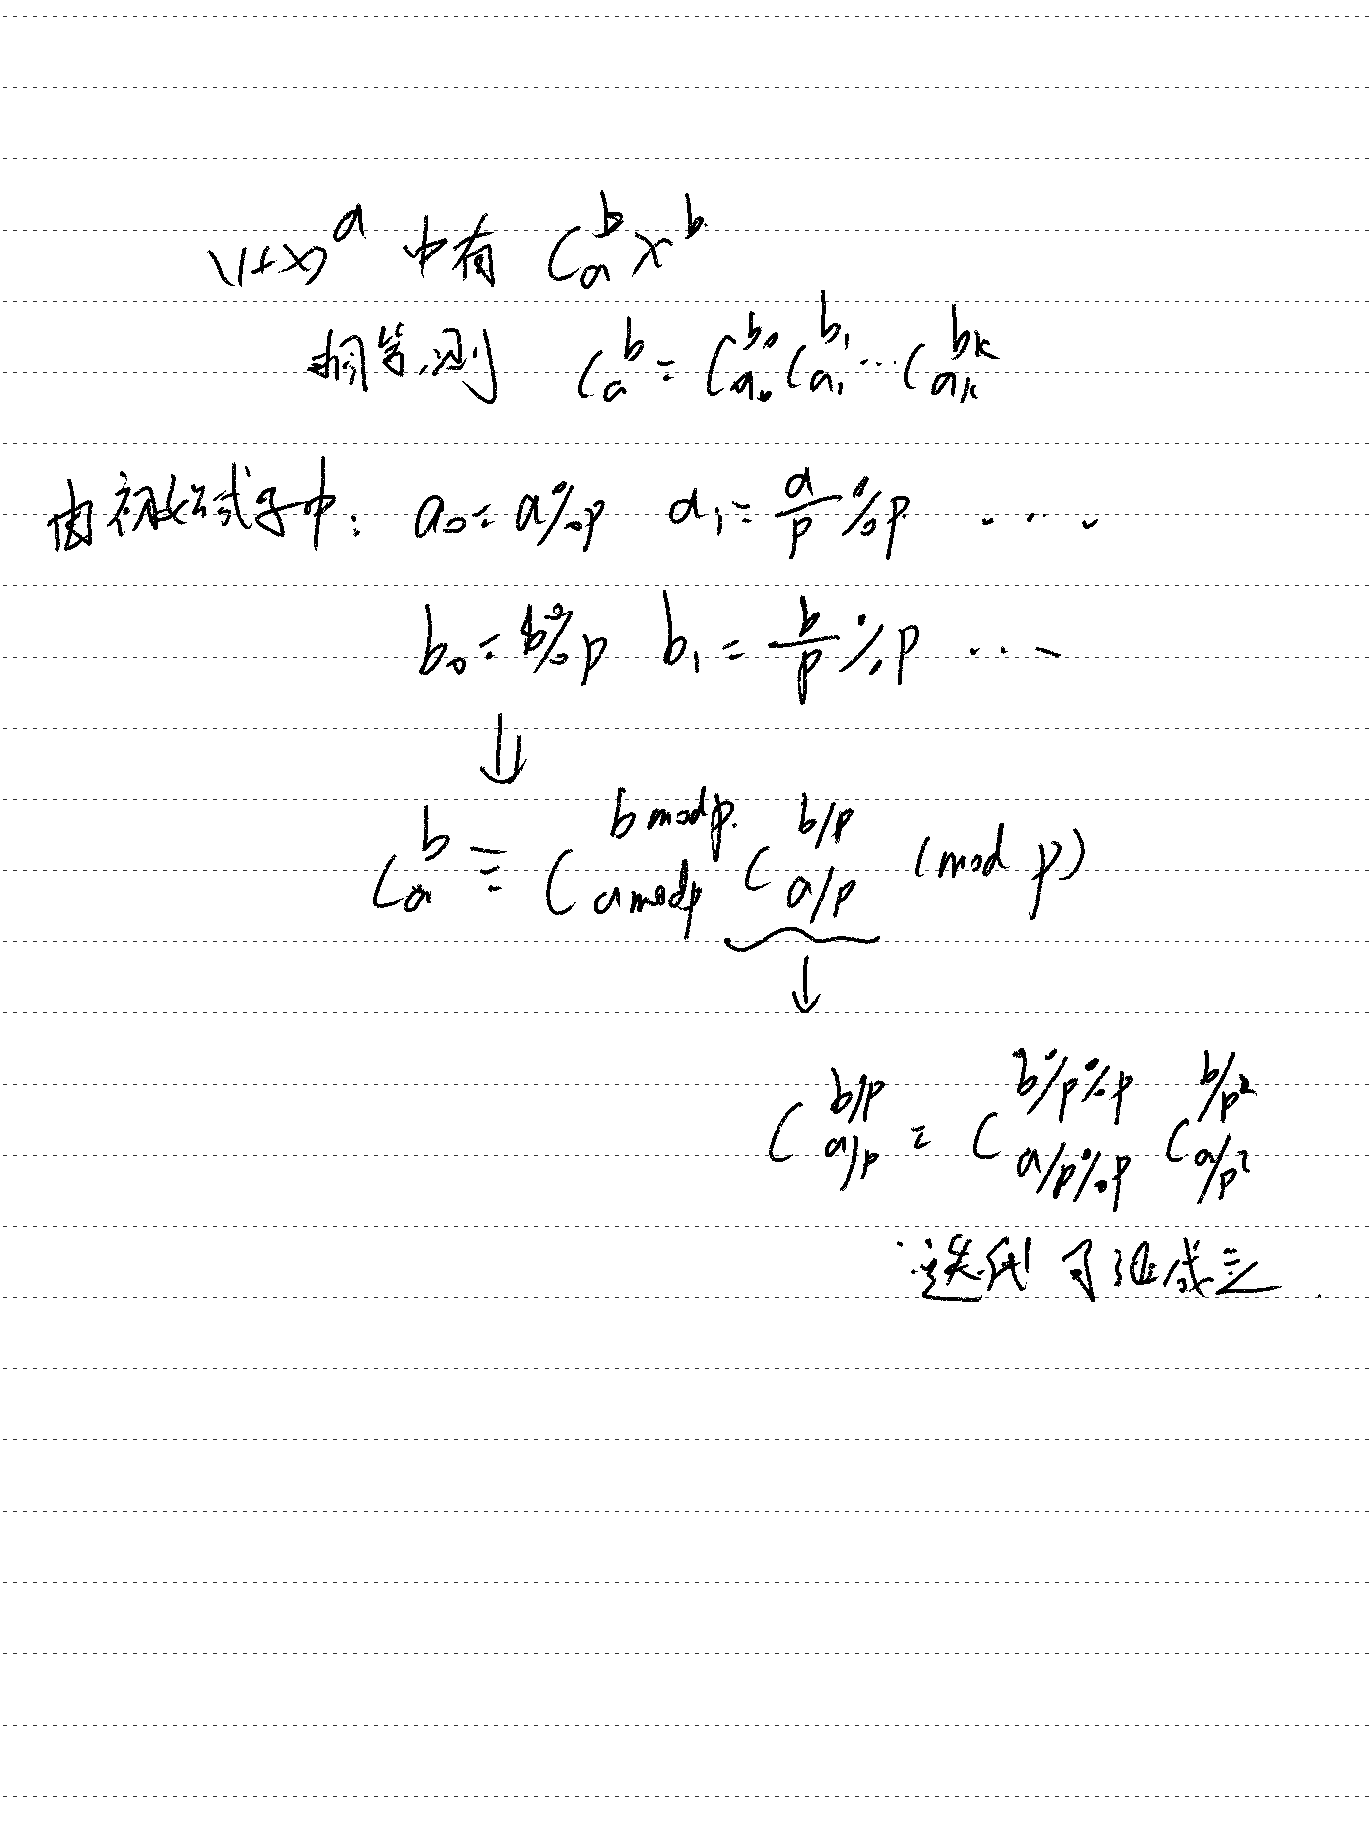 (1+x)^a 中有 C_a^b x^b
相等,则 C_a^b = C_{a_0}^{b_0} C_{a_1}^{b_1} … C_{a_k}^{b_k}
由初始式子中: a_0 = a%p a_1 = \frac{a}{p}%p ....
b_0 = b%p b_1 = \frac{b}{p}%p ....
⇓
C_a^b ≡ C_{a mod p}^{b mod p} C_{a/p}^{b/p} (mod p)
↓
C_{a/p}^{b/p} = C_{a/p%p}^{b/p%p} C_{a/p^2}^{b/p^2}
迭代可证成立.